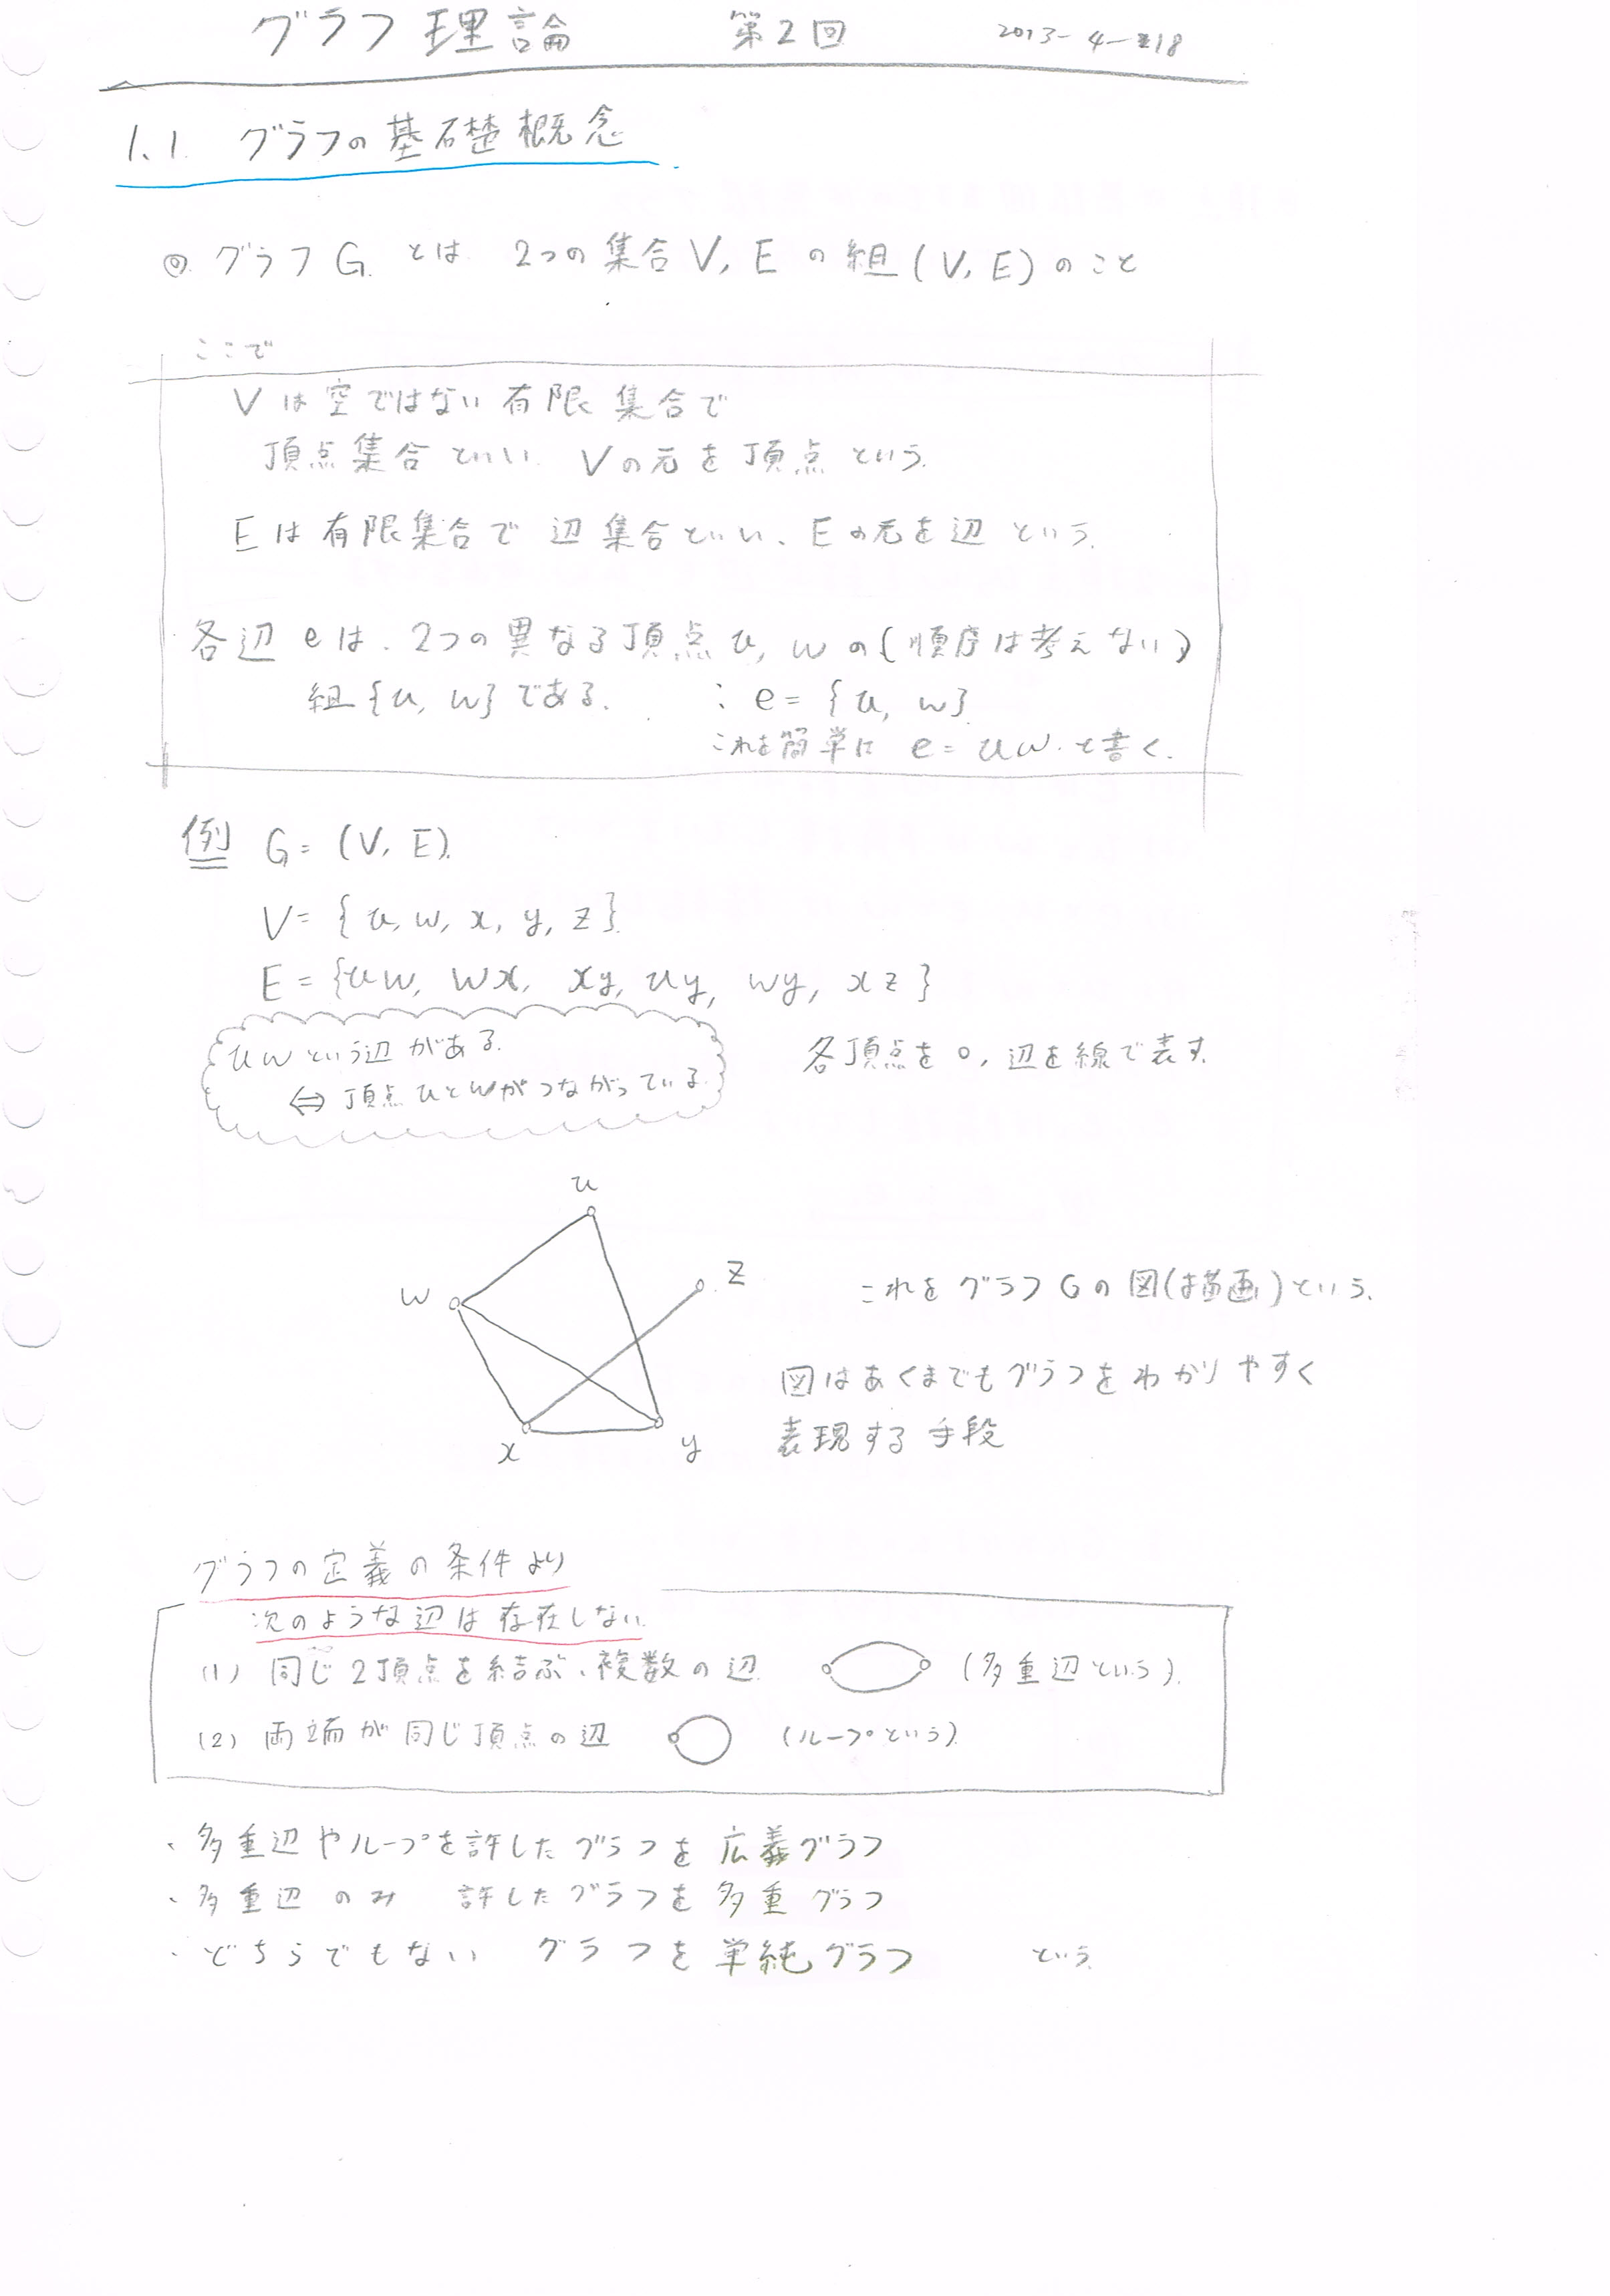 グラフ理論 第2回 2013-4-18
1.1. グラフの基礎概念
◎ グラフG とは 2つの集合V, E の組(V, E)のこと
ここで
Vは空ではない有限集合で
頂点集合といい Vの元を頂点という.
Eは有限集合で 辺集合といい、Eの元を辺という.
各辺eは、2つの異なる頂点u, wの(順序は考えない)
組{u, w}である. : e = {u, w}
これを簡単に e = uw と書く.
例 G = (V, E).
V = {u, w, x, y, z}
E = {uw, wx, xy, uy, wy, xz}
uwという辺がある.
⇔ 頂点uとwがつながっている.
各頂点を○, 辺を線で表す.
u
z
w
x
y
これをグラフGの図(描画)という.
図はあくまでもグラフをわかりやすく
表現する手段
グラフの定義の条件より
次のような辺は存在しない.
(1) 同じ2頂点を結ぶ、複数の辺 (多重辺という).
(2) 両端が同じ頂点の辺 (ループという)
・多重辺やループを許したグラフを広義グラフ
・多重辺のみ 許したグラフを多重グラフ
・どちらでもない グラフを単純グラフ という.